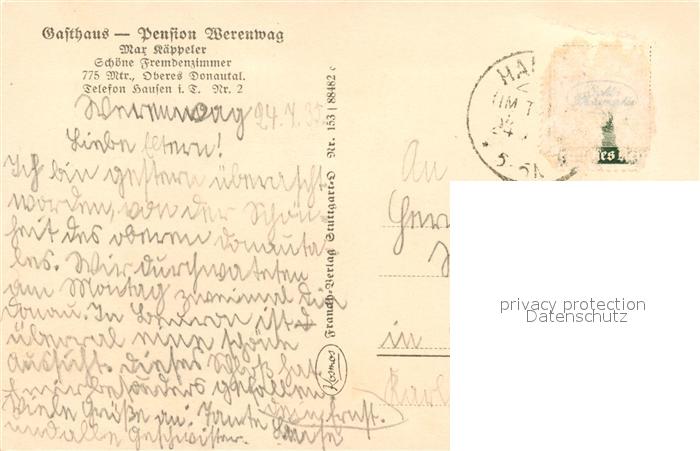 Gasthaus — Pension Werenwag
Max Käppeler
Schöne Fremdenzimmer
775 Mtr., Oberes Donautal.
Telefon Hausen i. T. Nr. 2
Werenwag 24.7.35
Liebe Eltern!
Ich bin gestern überrascht
worden, von der Schön-
heit des oberen Donauta-
les. Wir durchwateten
am Montag zweimal die
Donau. In Beuron ist
überall eine schöne
Aussicht. Dieses Schloß hat
mir besonders gefallen
Viele Grüße an: Tante
und alle Geschwister.
Franckh-Verlag Stuttgart-O Nr. 153 | 88482 c
Kosmos
HAU
(IM T
24
An
Herr
in
Karl
privacy protection
Datenschutz